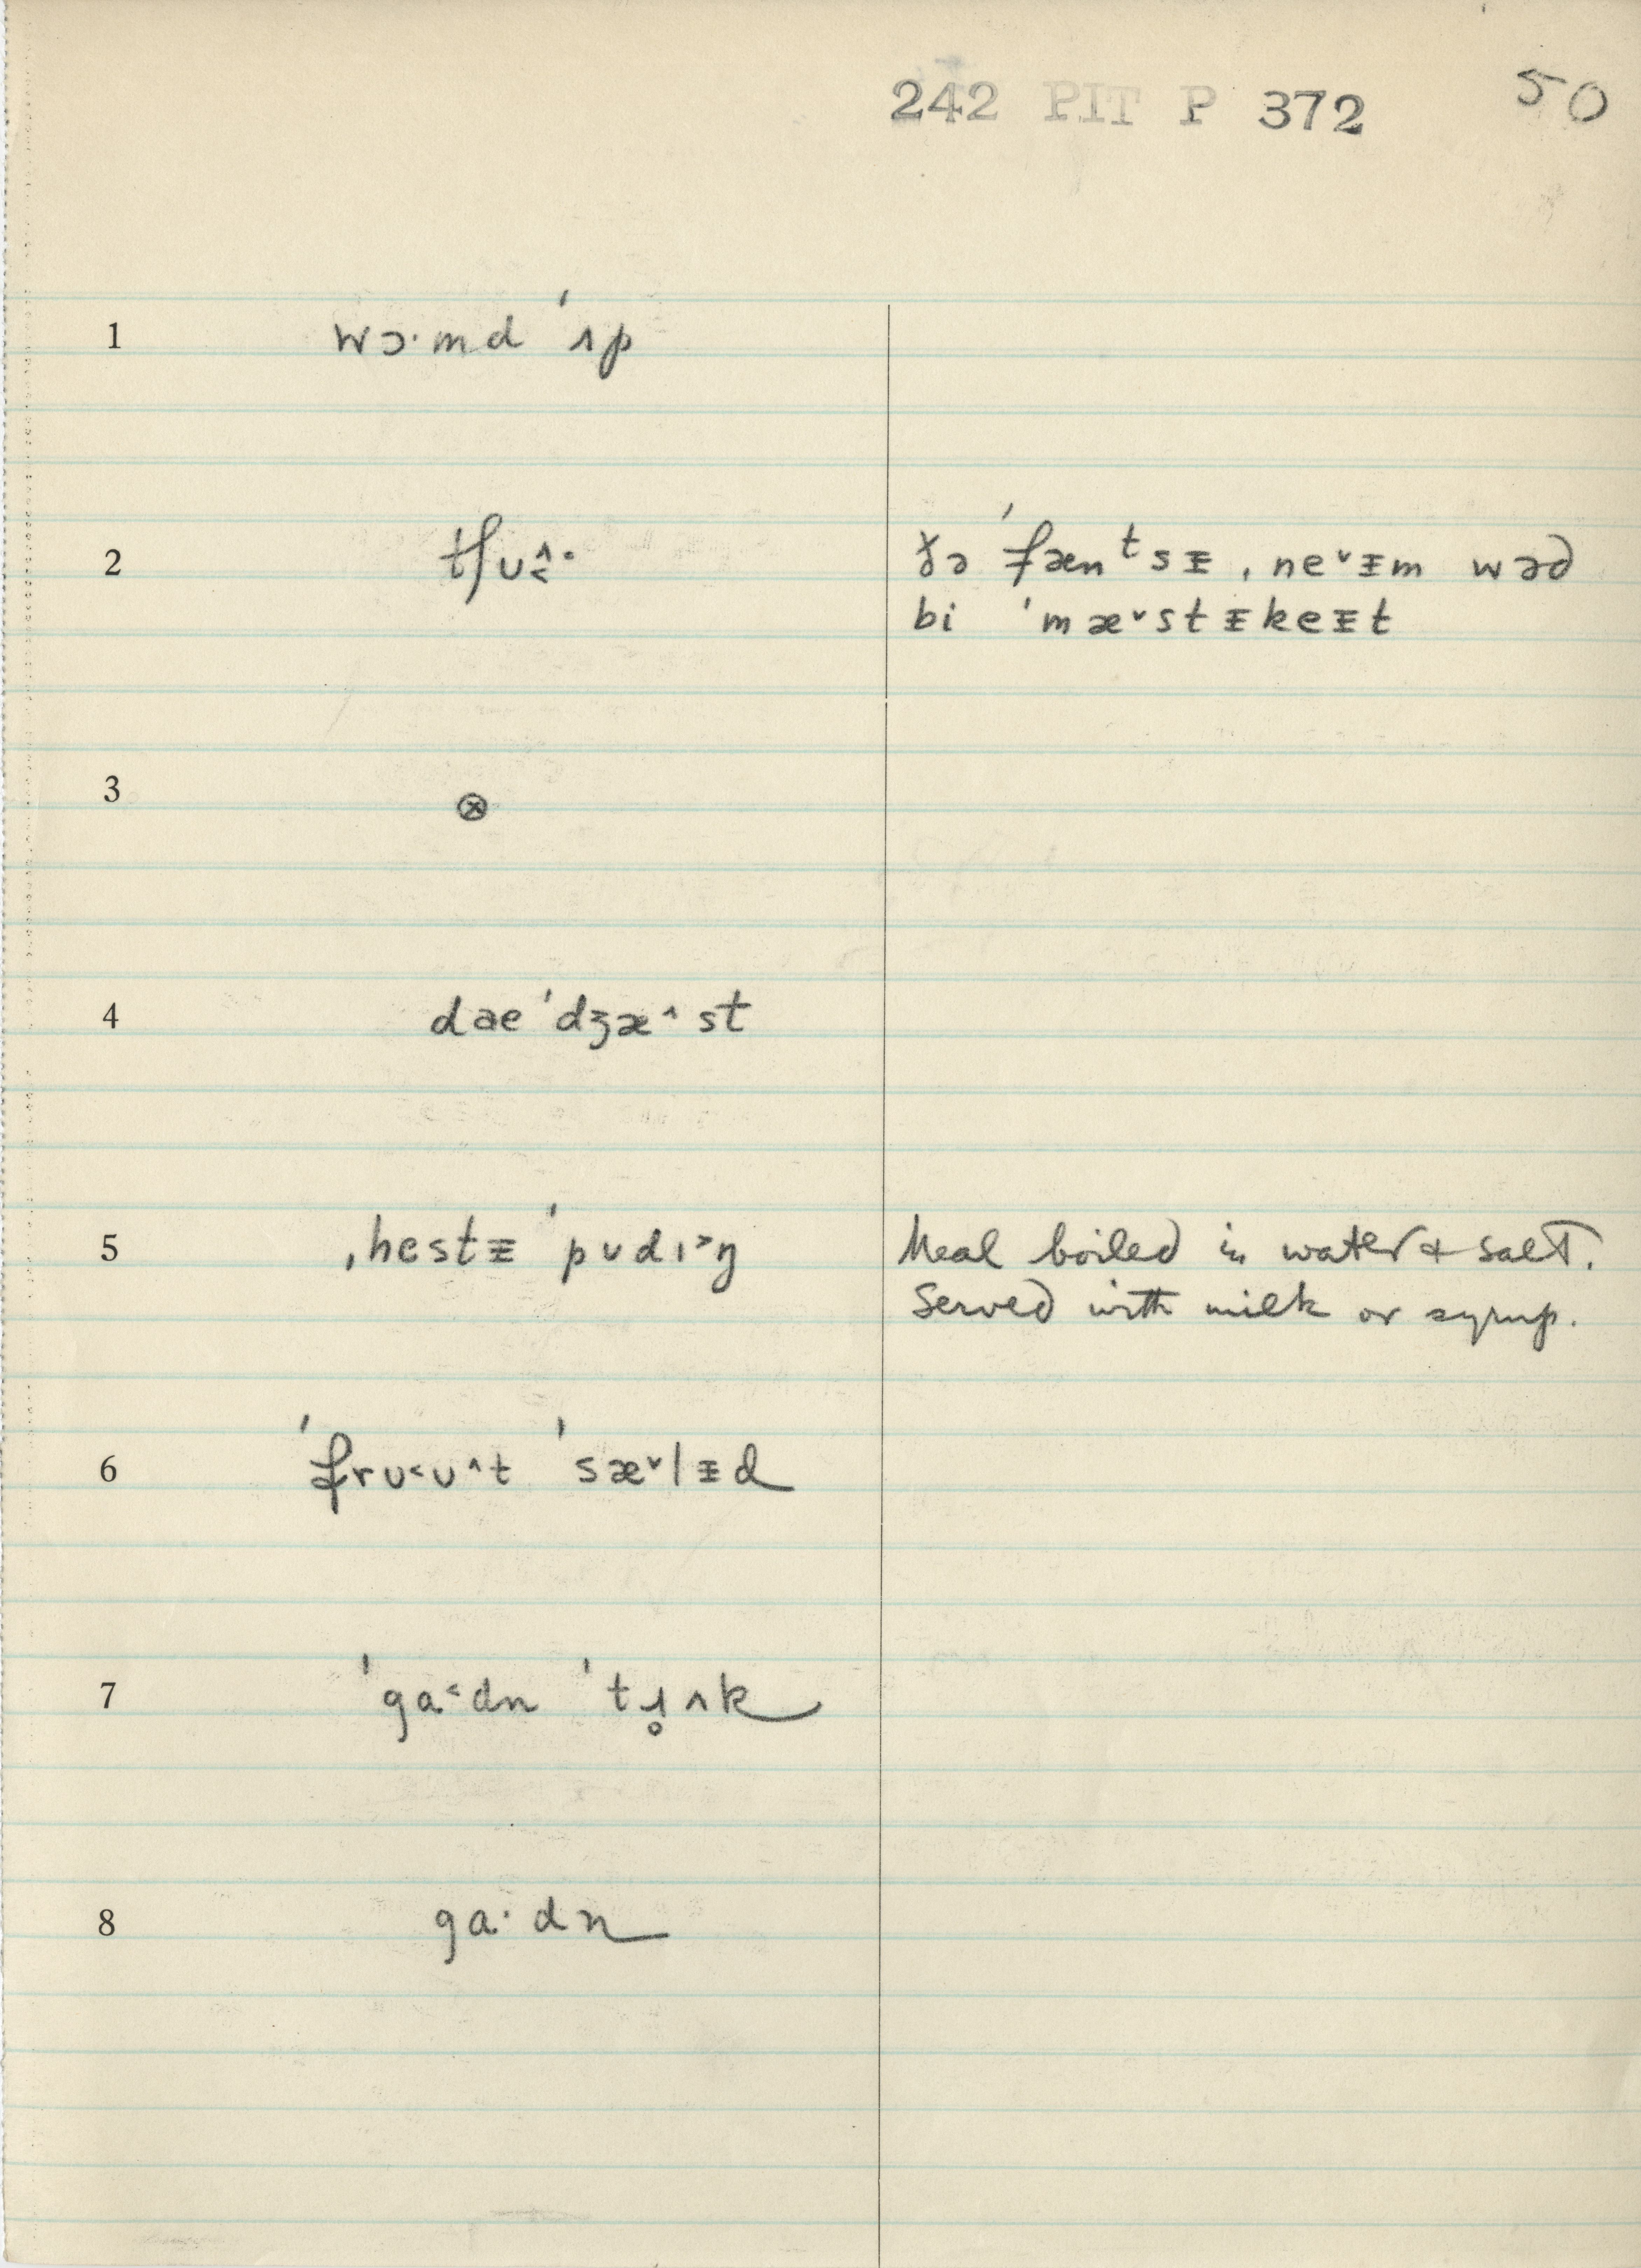 242 PIT P 372 50
1 wɔ·md ˈʌp
2 tʃu˄˂· ðə ˈfænᵗsɪ̵ ˌne˅ɪ̵m wəd
bi ˈmæ˅stɪ̵keɪ̵t
3 ⊗
4 dae ˈdʒæ˄st
5 ˌhestɪ̵ ˈpʊdɪ˃ŋ Meal boiled in water & salt.
Served with milk or syrup.
6 ˈfrʊ˂ʊ˄t ˈsæ˅lɪ̵d
7 ˈga˂dn ˈtɹ̥ʌk
8 ga·dn